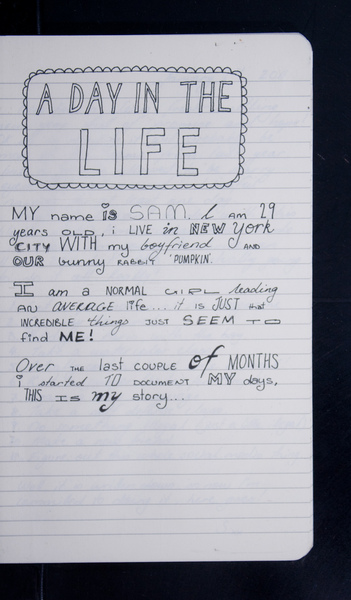 A DAY IN THE
LIFE
MY name is SAM. I AM 29
years OLD, i LIVE in NEW York
CITY WITH my boyfriend AND
OUR bunny RABBIT 'PUMPKIN'.
I am a NORMAL GIRL leading
AN AVERAGE life... it IS JUST that
INCREDIBLE things JUST SEEM TO
find ME!
Over THE last COUPLE of MONTHS
i started TO DOCUMENT MY days,
THIS IS my story...